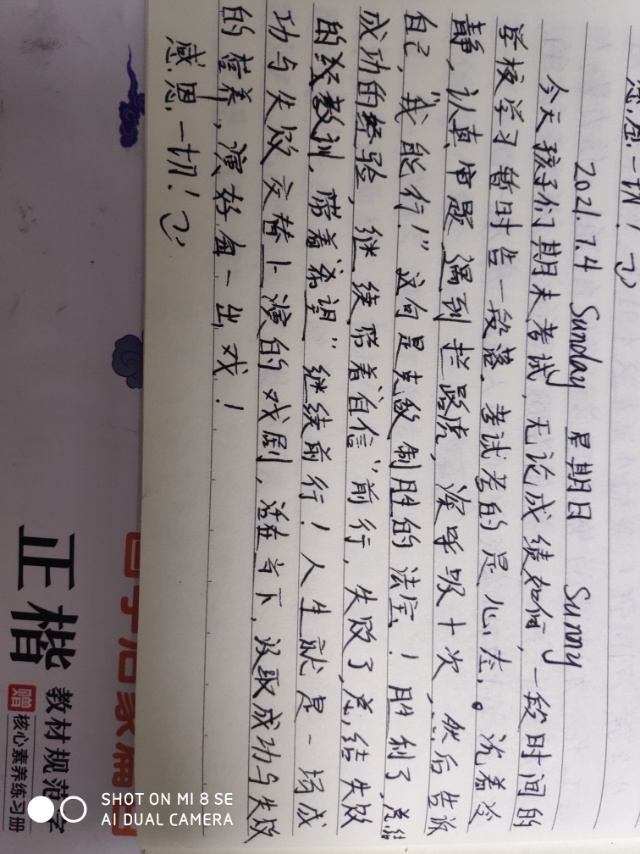 感恩一切!
2021.7.4 Sunday 星期日 Sunny
今天孩子们期末考试,无论成绩如何,一段时间的
学校学习暂时告一段落。考试考的是心态。沉着冷
静,认真审题,遇到拦路虎,深呼吸十次,然后告诉
自己,“我能行!”这何是克敌制胜的法宝!胜利了,总结
成功的经验,继续带着“自信”前行,失败了总结失败
的教训,带着“希望”继续前行!人生就是一场成
功与失败交替上演的戏剧,活在当下,汲取成功与失败
的营养,演好每一出戏!
感恩一切!
正楷
教材规范字
赠 核心素养练习册
SHOT ON MI 8 SE
AI DUAL CAMERA